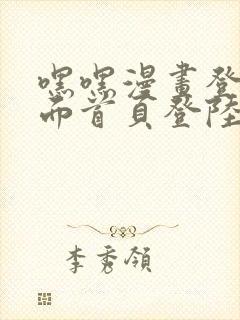 嘿嘿漫畫登
面首頁登陸
李秀領